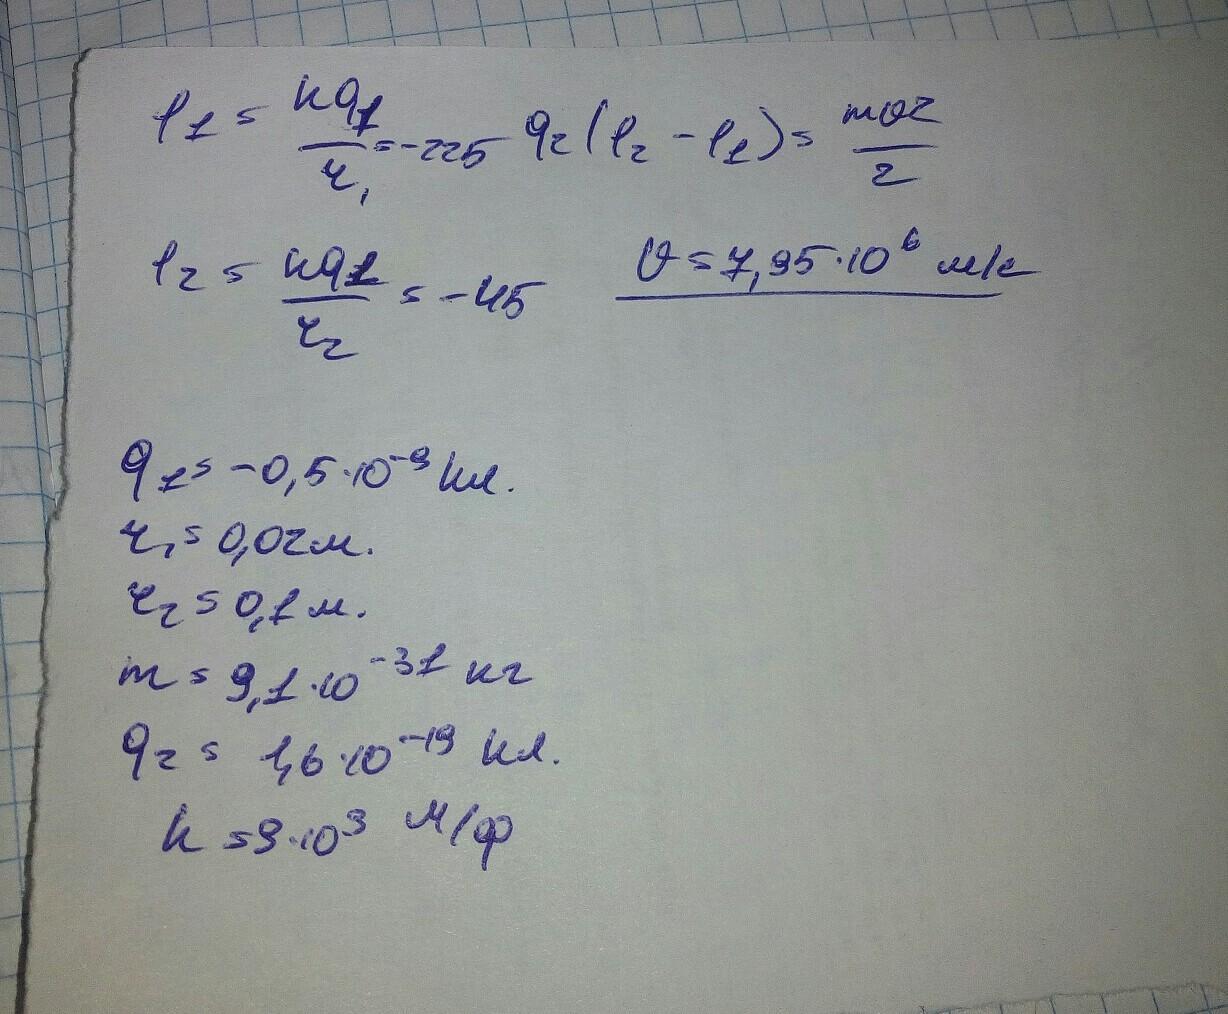 φ₁ = kq₁/r₁ = -225 q₂(φ₂ - φ₁) = mυ²/2
φ₂ = kq₁/r₂ = -45 υ = 7,95·10⁶ м/с
q₁ = -0,5·10⁻⁹ Кл.
r₁ = 0,02 м.
r₂ = 0,1 м.
m = 9,1·10⁻³¹ кг
q₂ = 1,6·10⁻¹⁹ Кл.
k = 9·10⁹ м/ф